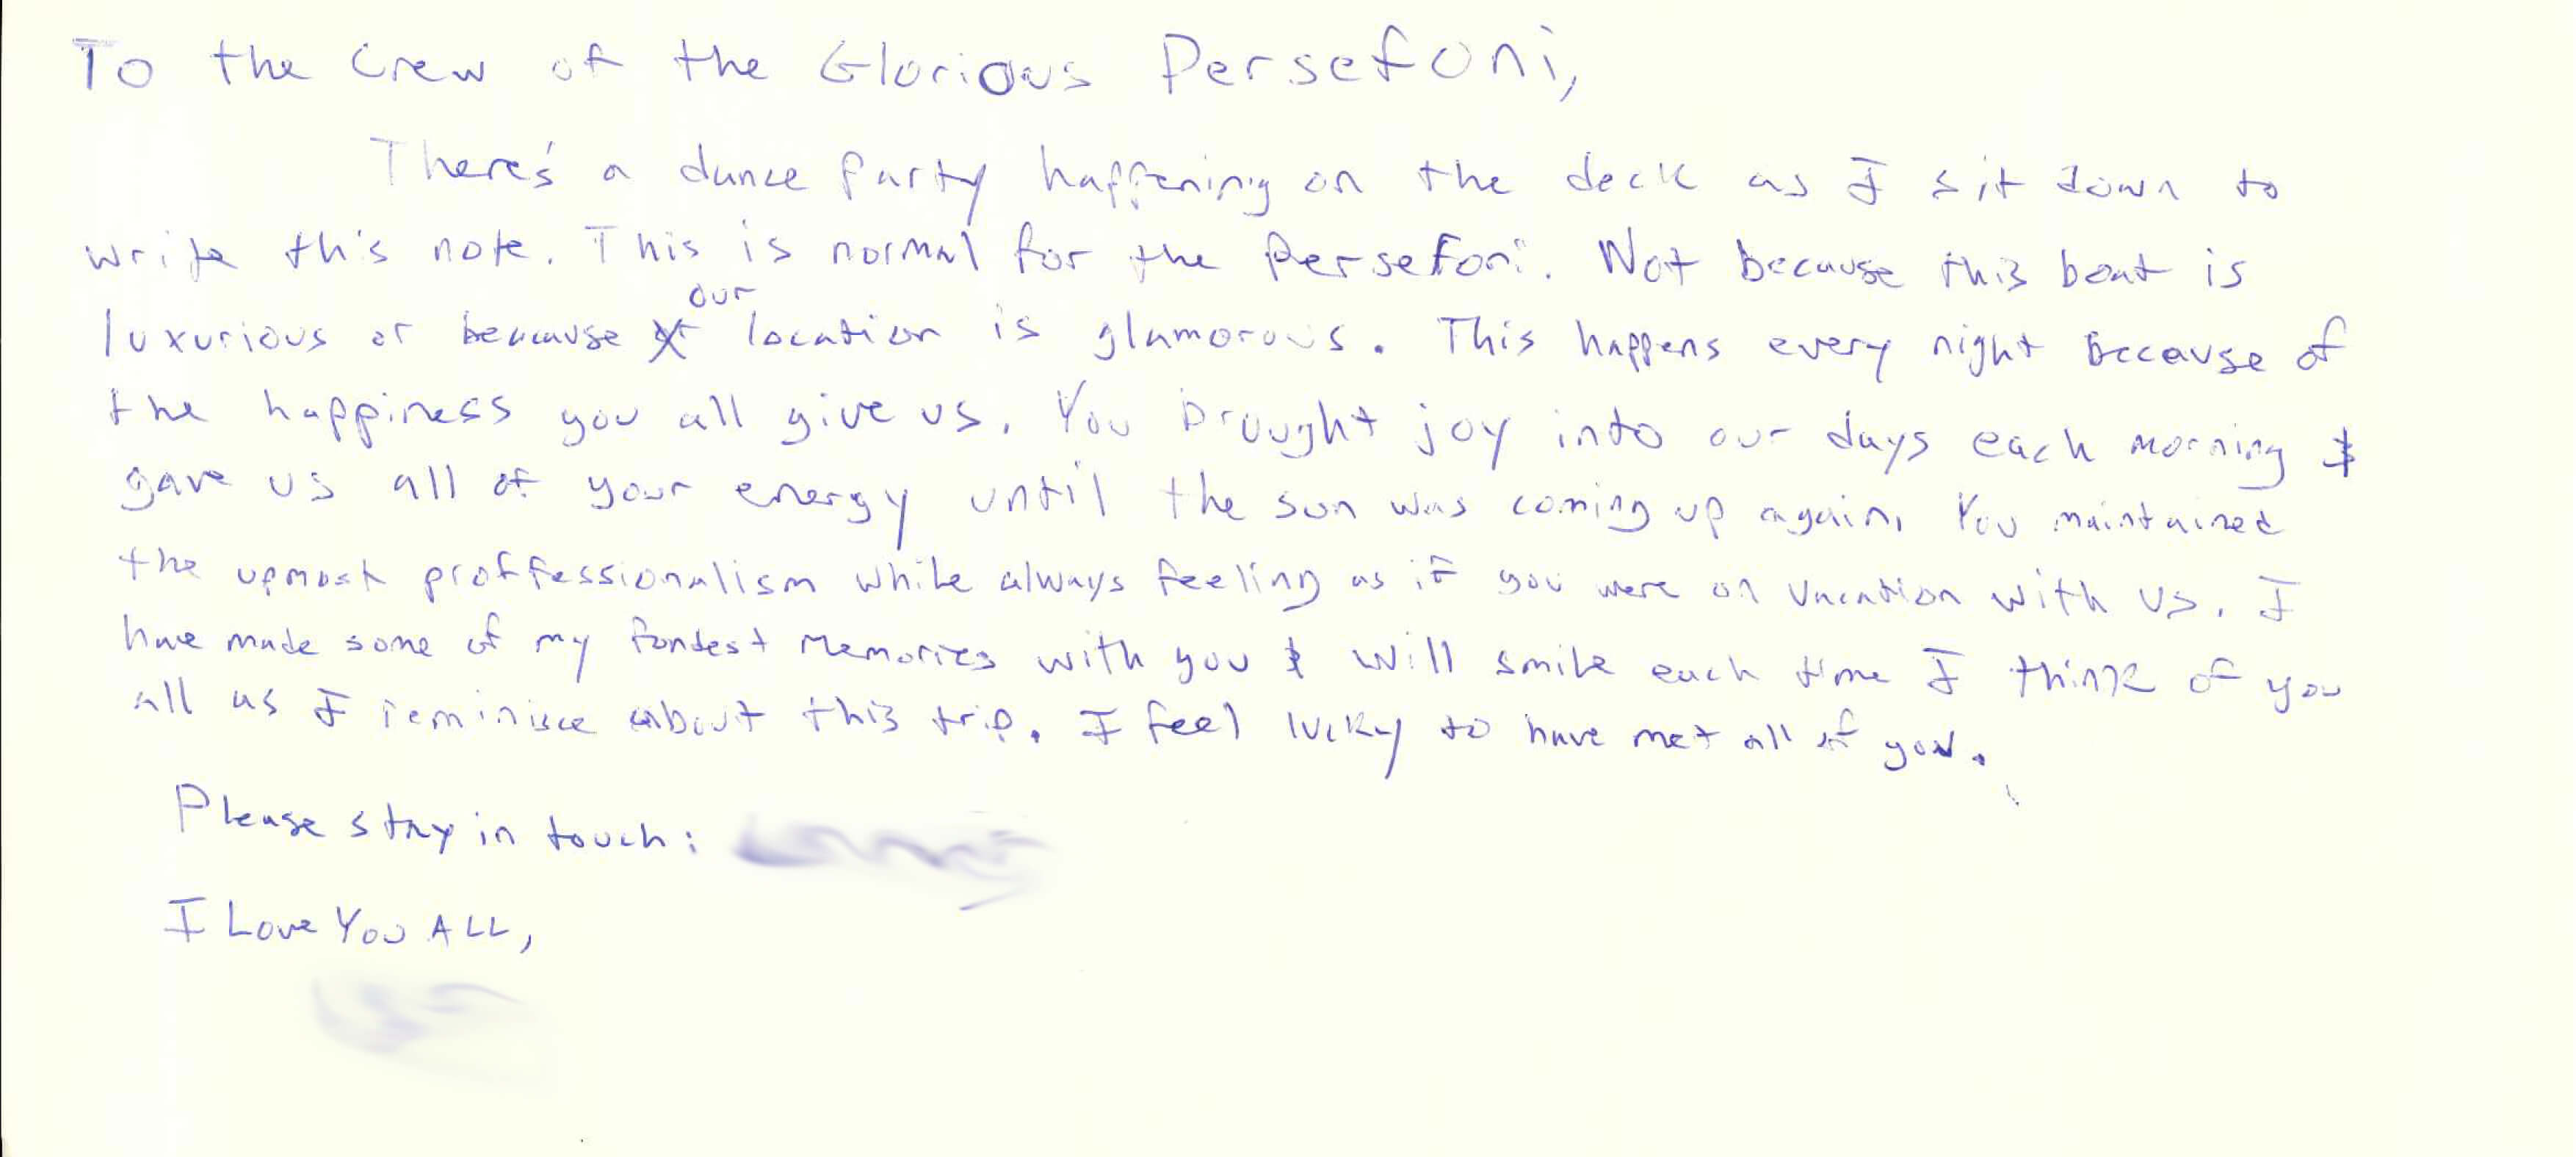 To the Crew of the Glorious Persefoni,
There's a dance party happening on the deck as I sit down to
write this note. This is normal for the Persefoni. Not because this boat is
our
luxurious or because location is glamorous. This happens every night because of
the happiness you all give us. You brought joy into our days each morning &
gave us all of your energy until the sun was coming up again. You maintained
the upmost proffessionalism while always feeling as if you were on vacation with us. I
have made some of my fondest memories with you & will smile each time I think of you
all as I reminisce about this trip. I feel lucky to have met all of you.
Please stay in touch:
I Love You ALL,